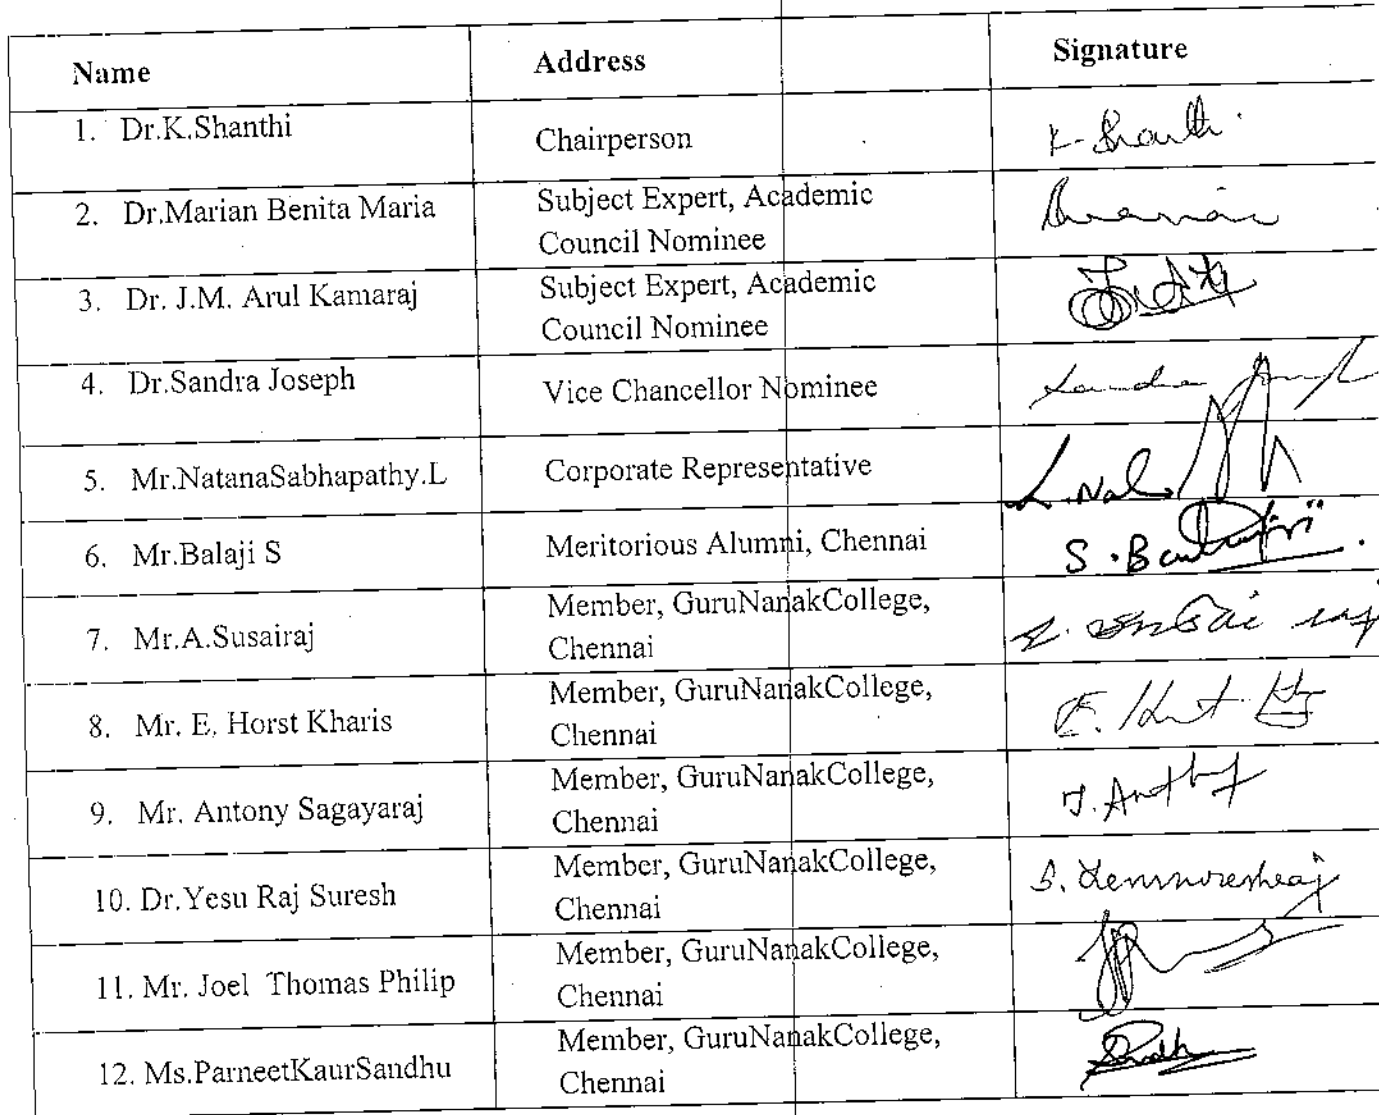 Name Address Signature
1. Dr.K.Shanthi Chairperson K. Shanthi
2. Dr.Marian Benita Maria Subject Expert, Academic
Council Nominee
3. Dr. J.M. Arul Kamaraj Subject Expert, Academic
Council Nominee
4. Dr.Sandra Joseph Vice Chancellor Nominee Sandra
5. Mr.NatanaSabhapathy.L Corporate Representative
6. Mr.Balaji S Meritorious Alumni, Chennai
7. Mr.A.Susairaj Member, GuruNanakCollege,
Chennai
8. Mr. E. Horst Kharis Member, GuruNanakCollege,
Chennai
9. Mr. Antony Sagayaraj Member, GuruNanakCollege,
Chennai
10. Dr.Yesu Raj Suresh Member, GuruNanakCollege,
Chennai
11. Mr. Joel Thomas Philip Member, GuruNanakCollege,
Chennai
12. Ms.ParneetKaurSandhu Member, GuruNanakCollege,
Chennai